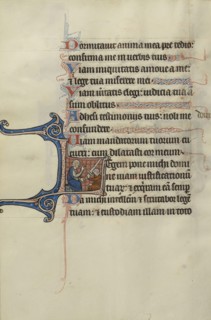 Dormitauit anima mea pre tedio:
confirma me in uerbis tuis
Uiam iniquitatis amoue a me:
et lege tua miserere mei
Uiam ueritatis elegi: iudicia tua
sum oblitus
Adhesi testimoniis tuis: noli me
confundere
Uiam mandatorum tuorum cu
curri: cum dilatasti cor meum
Legem pone michi domi
ne uiam iustificationum
tuarum: et exquiram eam semp
Da michi intellectum et scrutabor legem
tuam: et custodiam illam in toto